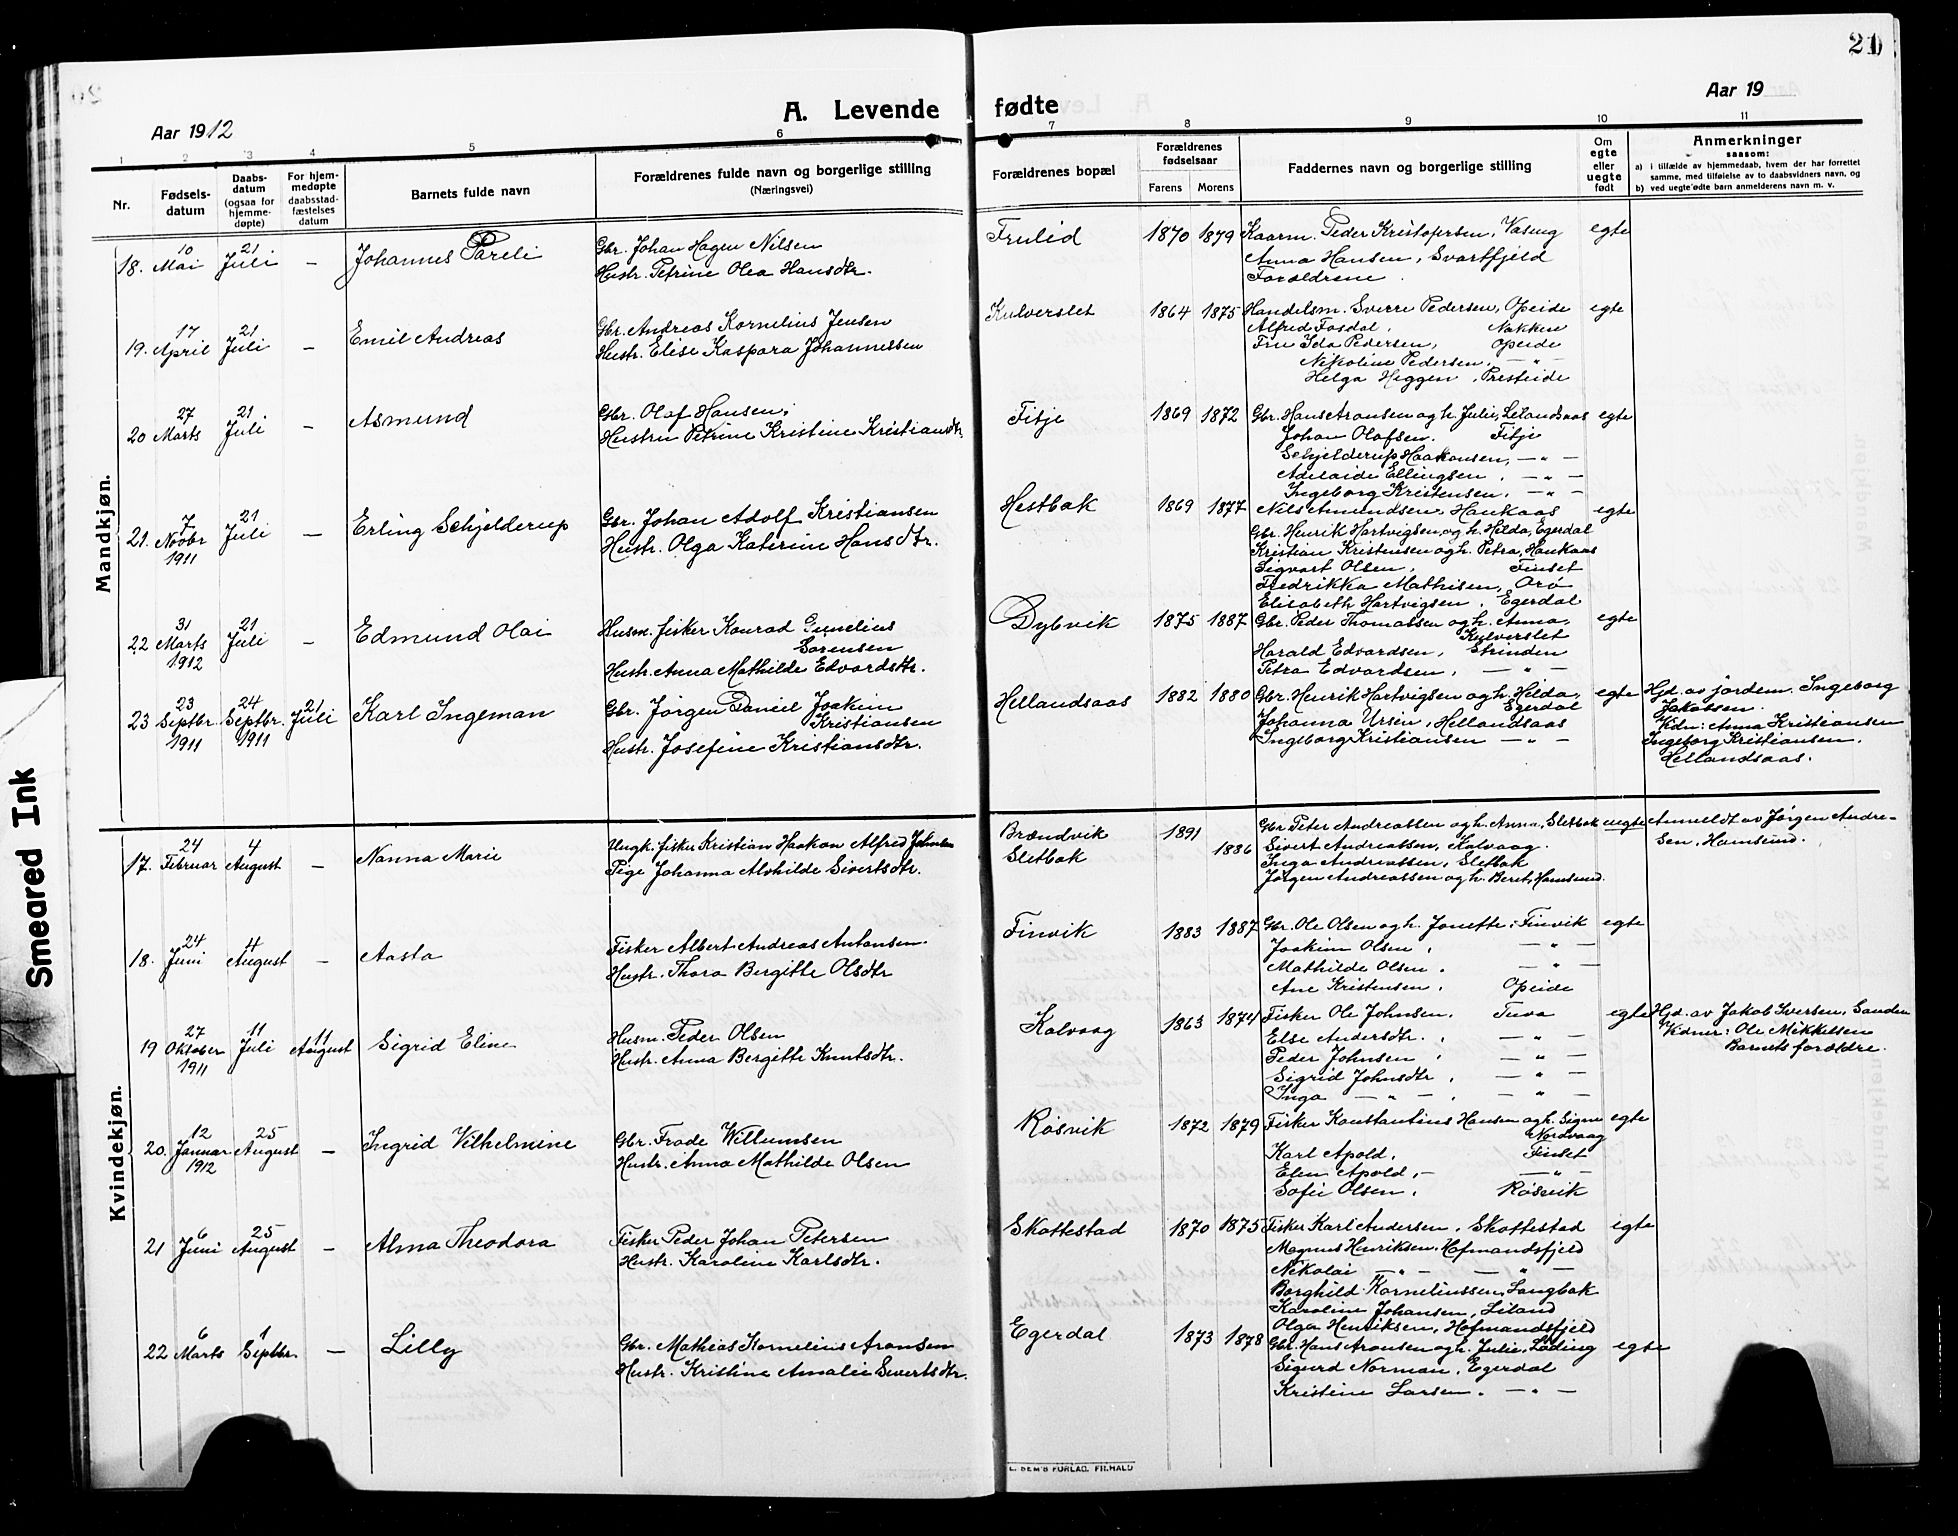 21
A. Levende fødte
Aar 1912
Aar 19
1 2 3 4 5 6 7 8 9 10 11
Nr.
Fødsels-
datum
Daabs-
datum
(ogsaa for
hjemme-
døpte)
For hjem-
medøpte
daabsstad-
fæstelses
datum
Barnets fulde navn
Forældrenes fulde navn og borgerlige stilling
(Næringsvei)
Forældrenes bopæl
Forældrenes
fødselsaar
Farens Morens
Faddernes navn og borgerlige stilling
Om
egte
eller
uegte
født
Anmerkninger
saasom:
a) i tilfælde av hjemmedaab, hvem der har forrettet
samme, med tilføielse av to daabsvidners navn, og
b) ved uegte fødte barn anmelderens navn m. v.
Mandkjøn.
18. 10 Mai 21 Juli — Johannes Pareli
Gbr. Johan Hagen Nilsen
Hustr. Petrine Olea Hansdtr.
Frulid 1870 1879 Kaarm. Peder Kristofersen, egte
Anna Hansen, Svartfjeld
Forældrene
19. 17 April 21 Juli — Emil Andreas
Gbr. Andreas Kornelius Jensen
Hustr. Elise Kaspara Johannessen
Kulverslet 1864 1875 Handelsm. Sverre Pedersen, Opeide egte
Alfred Fosdal, Nakken
Fru Ida Pedersen, Opeide
Nikoline Pedersen, — " —
Helga Heggen, Presteide
20 27 Marts 21 Juli — Asmund
Gbr. Olaf Hansen,
Hustru Petrine Kristine Kristiansdtr.
Fitje 1869 1872 Gbr. Hans Aronsen og h. Julie, egte
Johan Olafsen. Fitje
Schjelderup Haakonsen, — " —
Adelaide Ellingsen, — " —
Ingeborg Kristensen. — " —
21. 7 Novbr 1911 21 Juli — Erling Schjelderup
Gbr. Johan Adolf Kristiansen
Hustr. Olga Katerine Hansdtr.
Hestbak 1869 1877 Nils Amundsen, Haukaas egte
Gbr. Henrik Hartvigsen og h. Hilda, Egerdal
Kristian Kristensen og h. Petra, Haukaas
Sigvart Olsen, Finset
Fredrikka Mathisen, Orø
Elisabeth Hartvigsen, Egerdal
22 31 Marts 1912 21 Juli — Edmund Olai
Husm. fisker Konrad Cornelius
Sørensen
Hustr. Anna Mathilde Edvardsdtr.
Dybvik 1875 1887 Gbr. Peder Thomassen og h. Anna, egte
Kulverslet
Harald Edvardsen, Strinden
Petra Edvardsen, — " —
23 23 Septbr. 1911 24 Septbr. 1911 21 Juli Karl Ingeman
Gbr. Jørgen Daniel Joakim
Kristiansen
Hustr. Josefine Kristiansdtr.
Hellandsaas 1882 1880 Gbr. Henrik Hartvigsen og h. Hilda, egte Hjd. av jordem. Ingeborg
Egerdal Jakobsen.
Johanna Ursin, Hellandsaas Vidn: Anna Kristiansen
Ingeborg Kristiansen — " — Ingeborg Kristiansen,
Hellandsaas.
Kvindekjøn.
17. 24 Februar 4 August — Nanna Marie
Ungk. fisker Kristian Haakon Alfred Johnsen
Pige Johanna Alvhilde Sivertsdtr.
Brændvik 1891 Gbr. Peter Andreassen og h. Anna, Sletbak uegte Anmeldt av Jørgen Andre-
Sletbak 1886 Sivert Andreassen, Kalvaag. sen, Hamsund.
Inga Andreassen, Sletbak
Jørgen Andreassen og h. Beret, Hamsund.
18. 24 Juni 4 August — Aasta
Fisker Albert Andreas Antonsen
Hustr. Thora Bergitte Olsdtr
Finvik 1883 1887 Gbr. Ole Olsen og h. Jonette, Finvik egte
Joakim Olsen, — " —
Mathilde Olsen, — " —
Ane Kristensen, Opeide
19 27 Oktober 1911 11 Juli 11 August Sigrid Eline
Husm. Peder Olsen
Hustr. Anna Bergitte Knutsdtr.
Kalvaag 1863 1874 Fisker Ole Johnsen, Tuva egte Hjd. av Jakob Iversen, Sanden
Else Andersdtr., — " — Vidner: Ole Mikkelsen
Peder Johnsen, — " — Barnets forældre.
Sigrid Johnsdtr, — " —
Inga — " —, — " —
20. 12 Januar 1912 25 August — Ingrid Vilhelmine
Gbr. Frode Willumsen
Hustr. Anna Mathilde Olsen
Røsvik 1872 1879 Fisker Konstantinus Hansen og h. Signe egte
Nordvaag
Karl Apold, Finset
Elen Apold, — " —
Sofie Olsen, Røsvik
21 6 Juni 25 August — Alma Theodora
Fisker Peder Johan Petersen
Hustr. Karoline Karlsdtr.
Skottestad 1870 1875 Fisker Karl Andersen, Skottestad egte
Magnus Henriksen, Hofmandsfjeld
Nikolai — " — — " —
Borghild Korneliussen, Langbak
Karoline Johansen, Liland
Olga Henriksen, Hofmandsfjeld
22 6 Marts 1 Septbr. — Lilly
Gbr. Mathias Kornelius Aronsen
Hustr. Kristine Amalie Sivertsdtr.
Egerdal 1873 1878 Gbr. Hans Aronsen og h. Julie, Løding egte
Sigurd Norman, Egerdal
Kristine Larsen, — " —
Smeared Ink